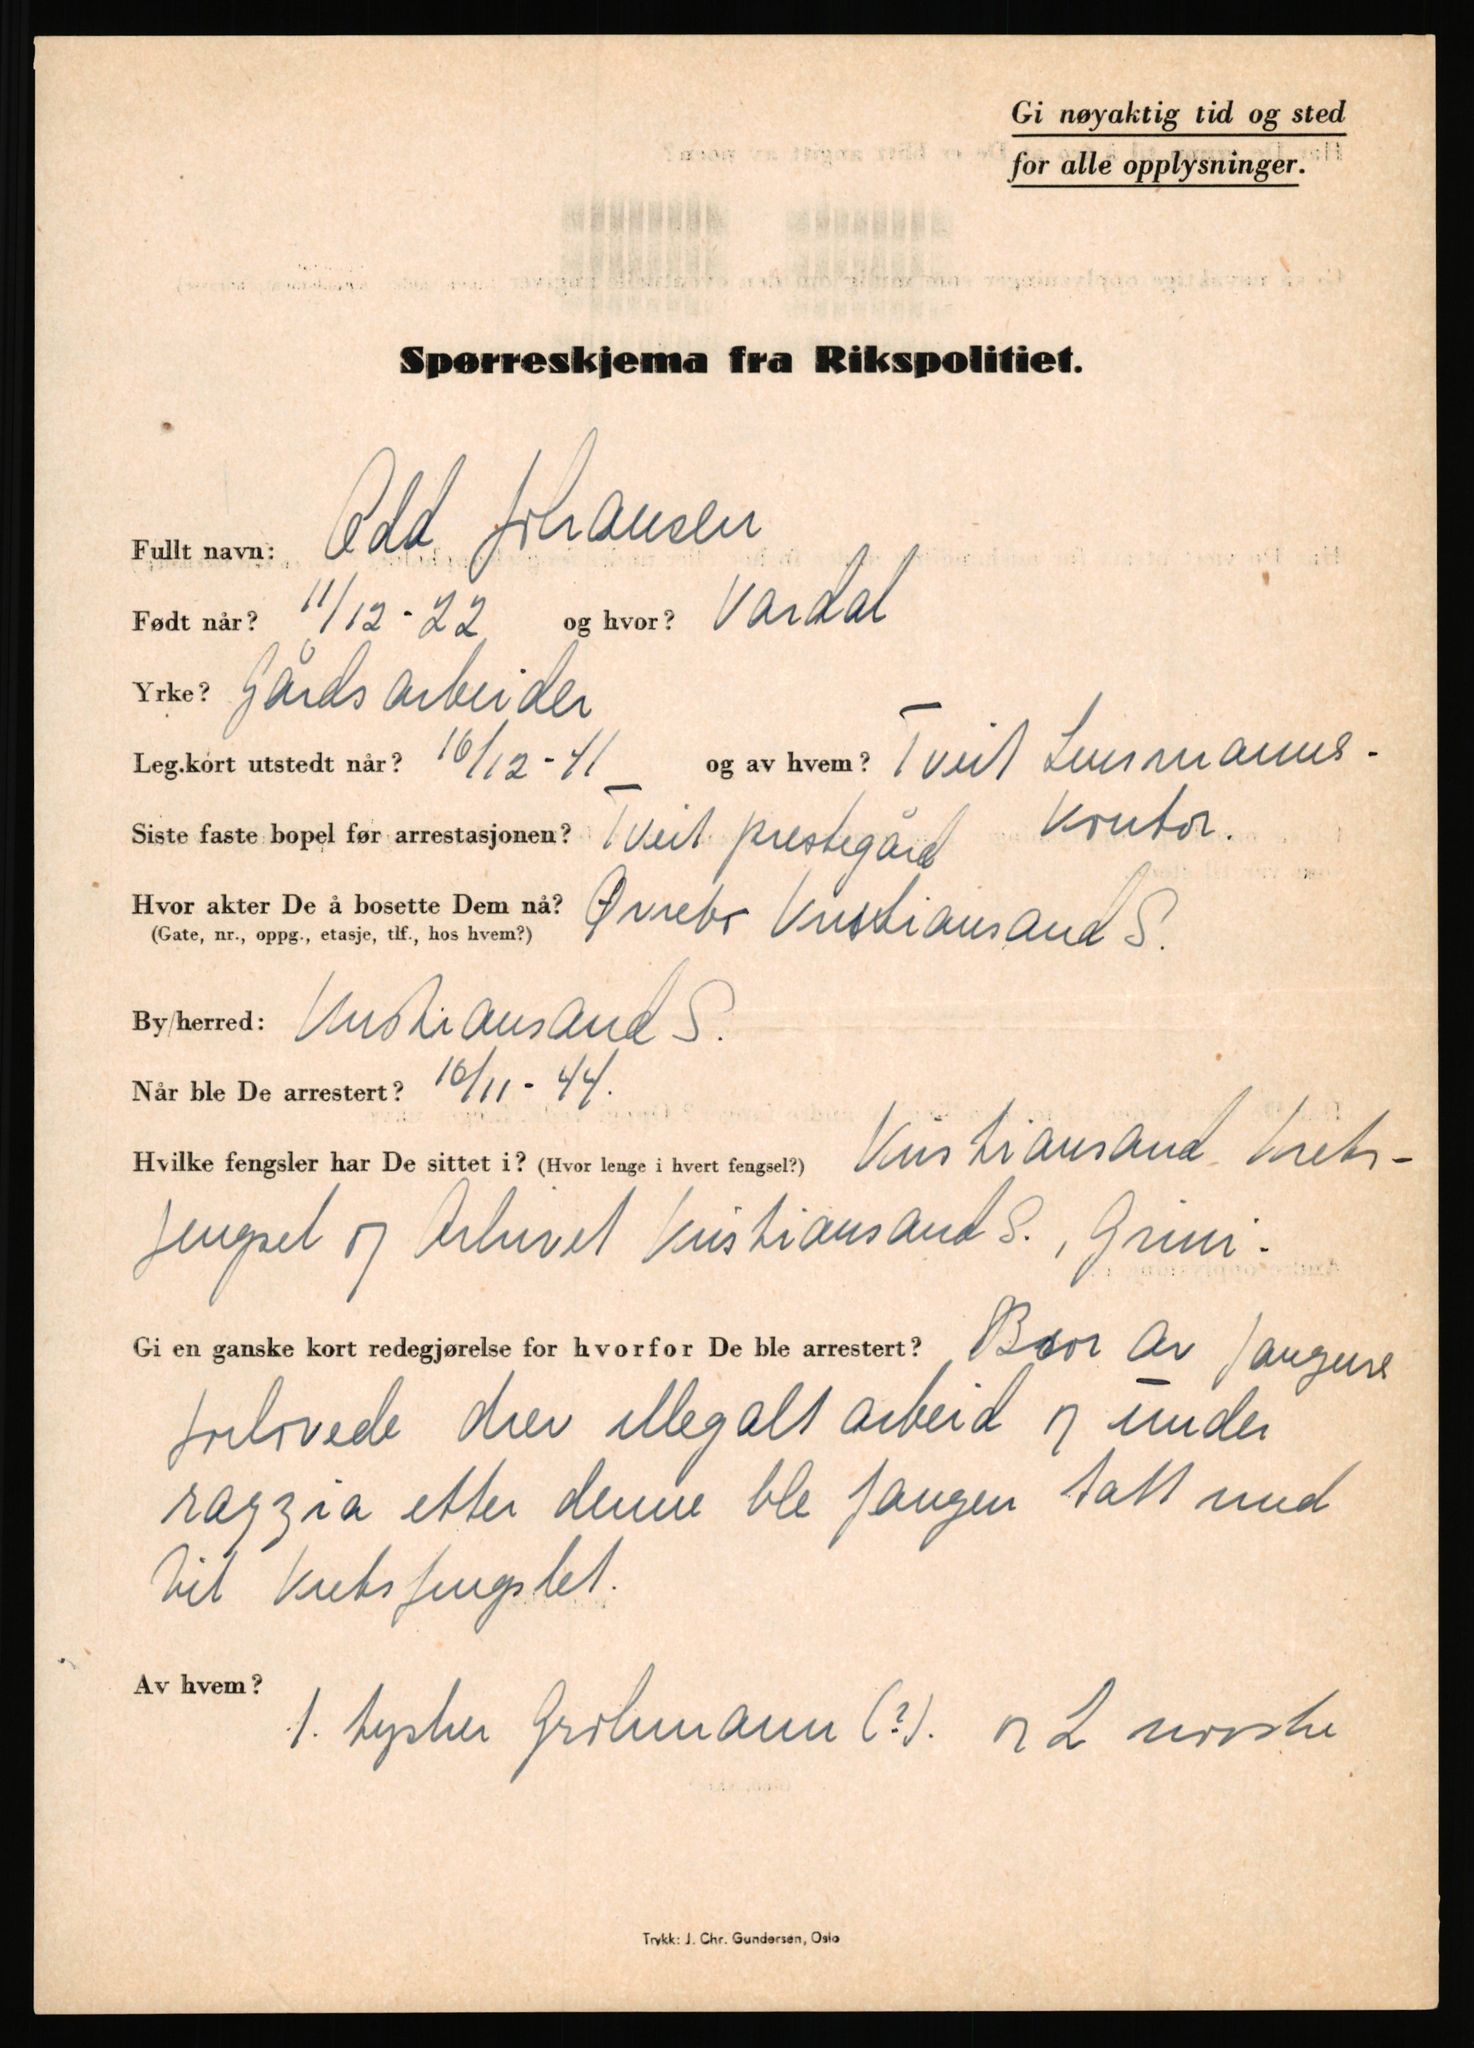 Gi nøyaktig tid og sted
for alle opplysninger.
Spørreskjema fra Rikspolitiet.
Fullt navn: Odd Johansen
Født når? 11/12-22 og hvor? Vardal
Yrke? Gårdsarbeider
Leg.kort utstedt når? 16/12-41 og av hvem? Tveit Lensmanns-
kontor.
Siste faste bopel før arrestasjonen? Tveit prestegård
Hvor akter De å bosette Dem nå? Øvrebø Kristiansand S.
(Gate, nr., oppg., etasje, tlf., hos hvem?)
By/herred: Kristiansand S.
Når ble De arrestert? 16/11-44.
Hvilke fengsler har De sittet i? (Hvor lenge i hvert fengsel?) Kristiansand Krets-
fengsel og Arkivet Kristiansand S., Grini.
Gi en ganske kort redegjørelse for hvorfor De ble arrestert? Bror av fangens
forlovede drev illegalt arbeid og under
razzia etter denne ble fangen tatt med
til Kretsfengslet.
Av hvem? 1. tysker Grohmann (?). og 2 norske
Trykk: J. Chr. Gundersen, Oslo